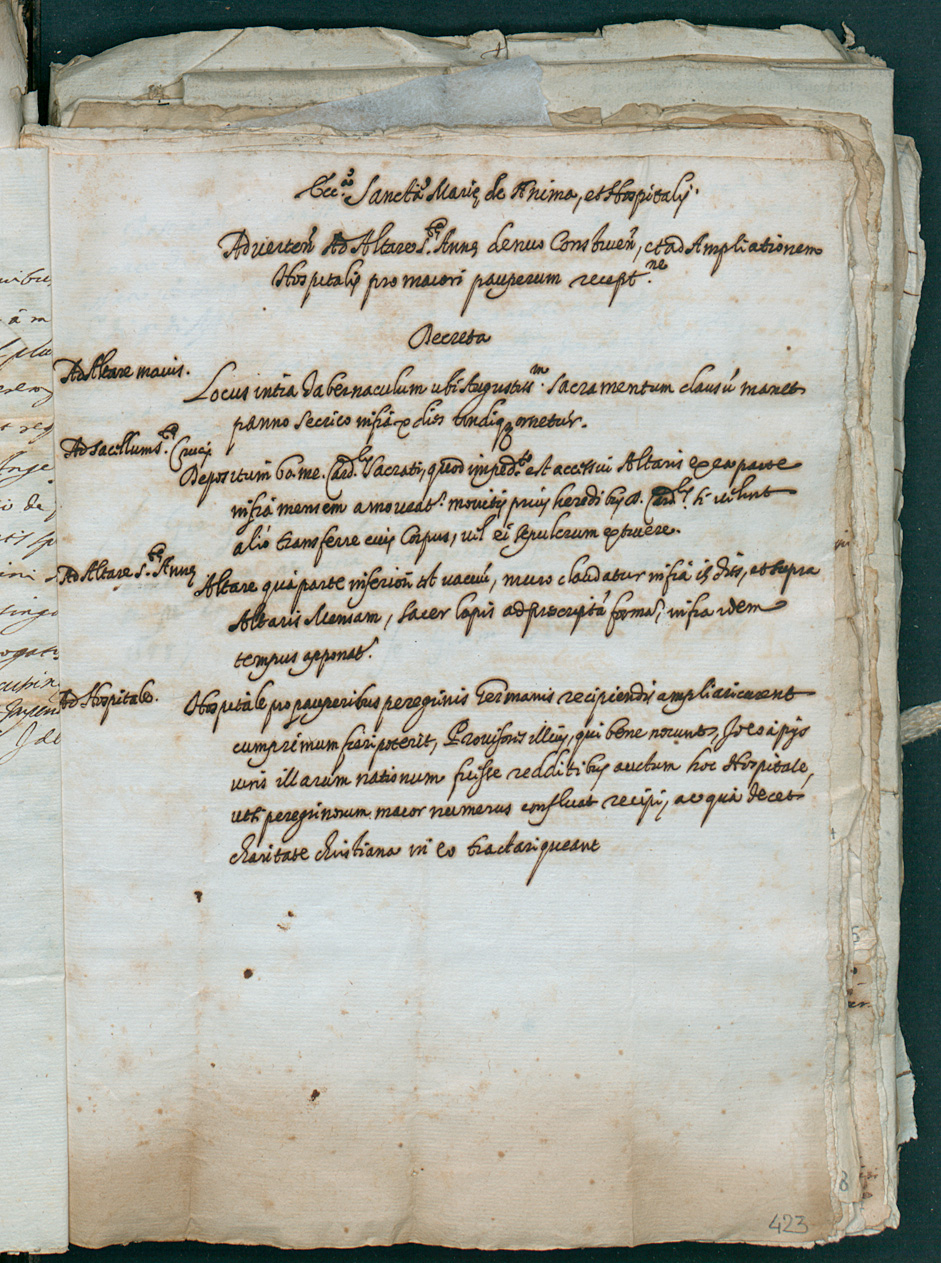 Ecc.æ Sanctæ Marię de Anima, et Hospitalis.
Adverten. Ad Altare S.tæ Annę denuo Construen, et ad Ampliationem
Hospitalis pro maiori pauperum recept.ne
Decreta
Ad Altare maius.
Locus intra Tabernaculum ubi Augustiss.m Sacramentum clausũ manet
panno Serico infra X dies undiq ornetur.
Ad Sacellum S.æ Crucis
Depositum bo. me. Card.lis Vacrati, quod imped.to est accessui Altaris ex ea parte
infra mensem amoveat.r monitis prius heredibus d. Card.lis si velint
aliò transferre eius Corpus, vel ei sepulcrum extruere.
Ad Altare S.tæ Annę
Altare qua parte inferiori est vacuũ, muro claudatur infra 15 dies, et supra
Altaris Mensam, sacer lapis ad prescriptã formã, infra idem
tempus apponat.r
Ad Hospitale.
Hospitale pro pauperibus peregrinis Germanis recipiendis ampliari curent
cum primum fieri poterit, Provisores illius, qui bene norunt, Ideo à pijs
viris illarum nationum fuisse redditibus auctum hoc Hospitale,
ut peregrinorum maior numerus confluat recipi, ac quà decet
charitate christiana in eo tractari queant
423